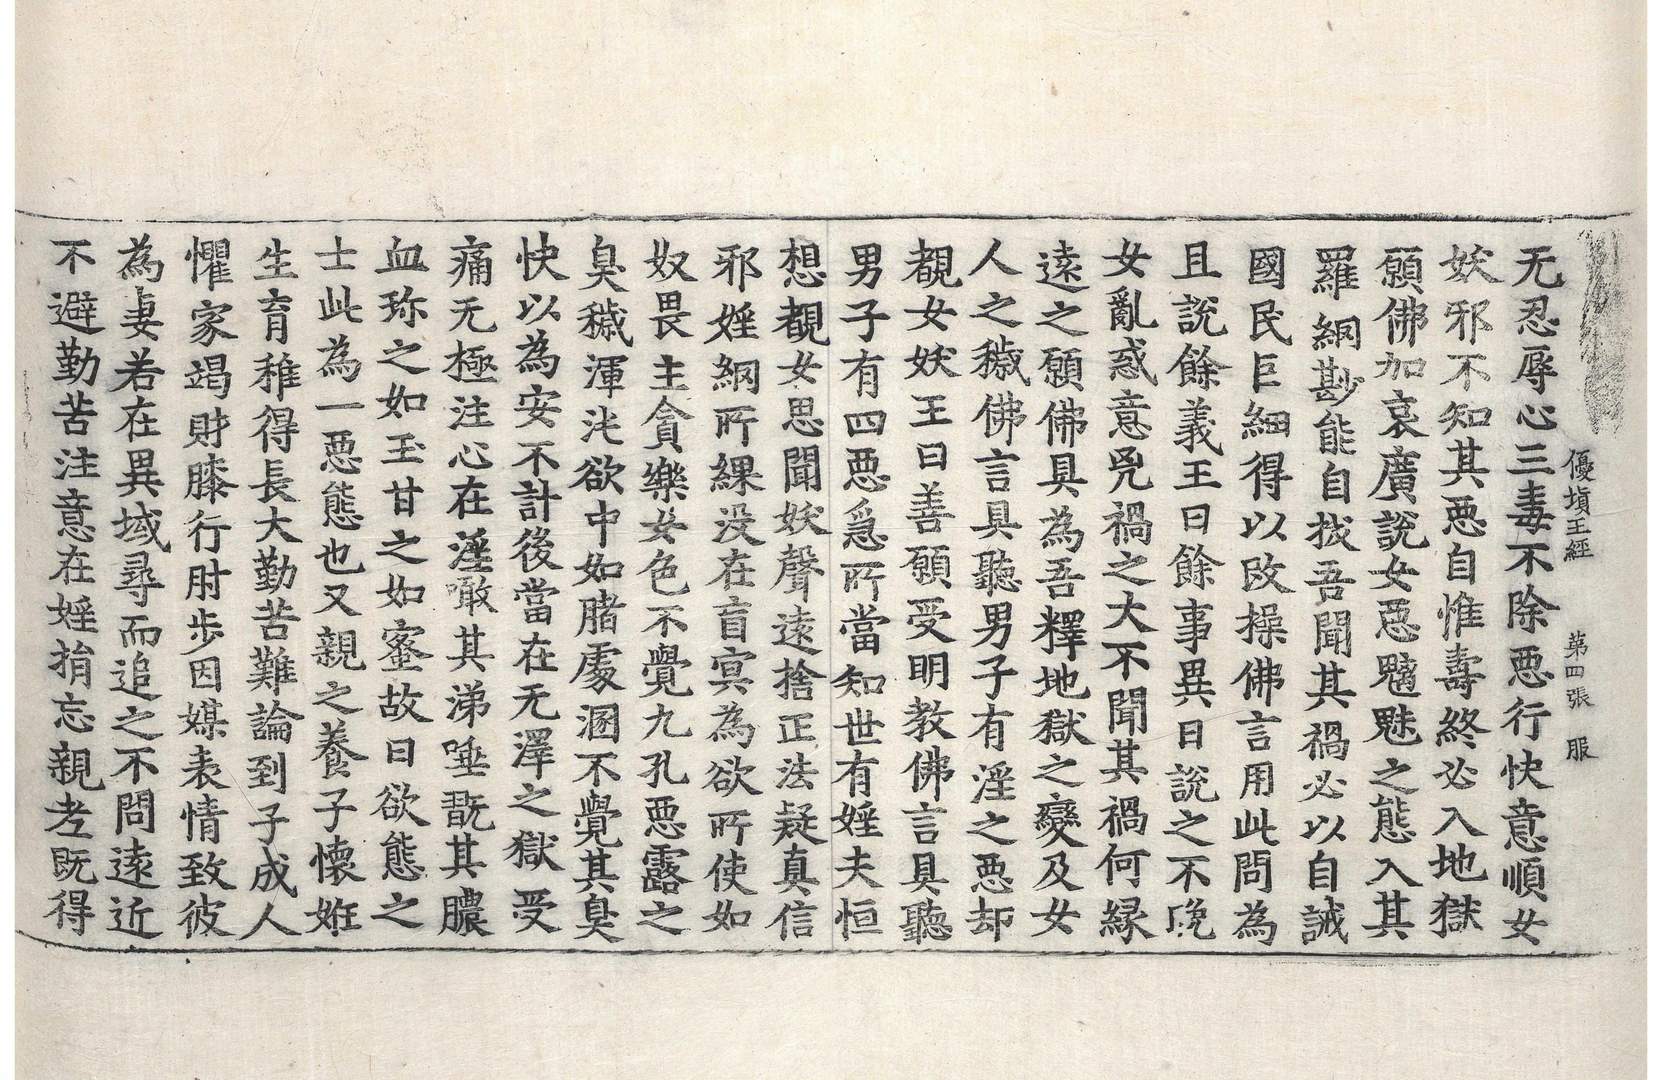 優塡王經 第四張 服
无忍辱心三毒不除惡行快意順女
妖邪不知其惡自惟壽終必入地獄
願佛加哀廣說女惡魑魅之態入其
羅網尠能自拔吾聞其禍必以自誡
國民巨細得以改操佛言用此問為
且說餘義王曰餘事異日說之不晚
女亂惑意㓙禍之大不聞其禍何縁
逺之願佛具為吾釋地獄之變及女
人之穢佛言具聽男子有婬之惡却
覩女妖王曰善願受明教佛言具聽
男子有四惡急所當知世有婬夫恒
想覩女思聞妖聲逺捨正法疑真信
邪婬網所縲沒在盲冥為欲所使如
奴畏主貪樂女色不覺九孔惡露之
臭穢渾沌欲中如豬處溷不覺其臭
快以為安不計後當在无澤之獄受
痛无極注心在婬噉其涕唾翫其膿
血珎之如玉甘之如蜜故曰欲態之
士此為一惡態也又親之養子懷妊
生育稚得長大勤苦難論到子成人
懼家竭財膝行肘步因媒表情致彼
為妻若在異域尋而追之不問逺近
不避勤苦注意在婬捐忘親老既得